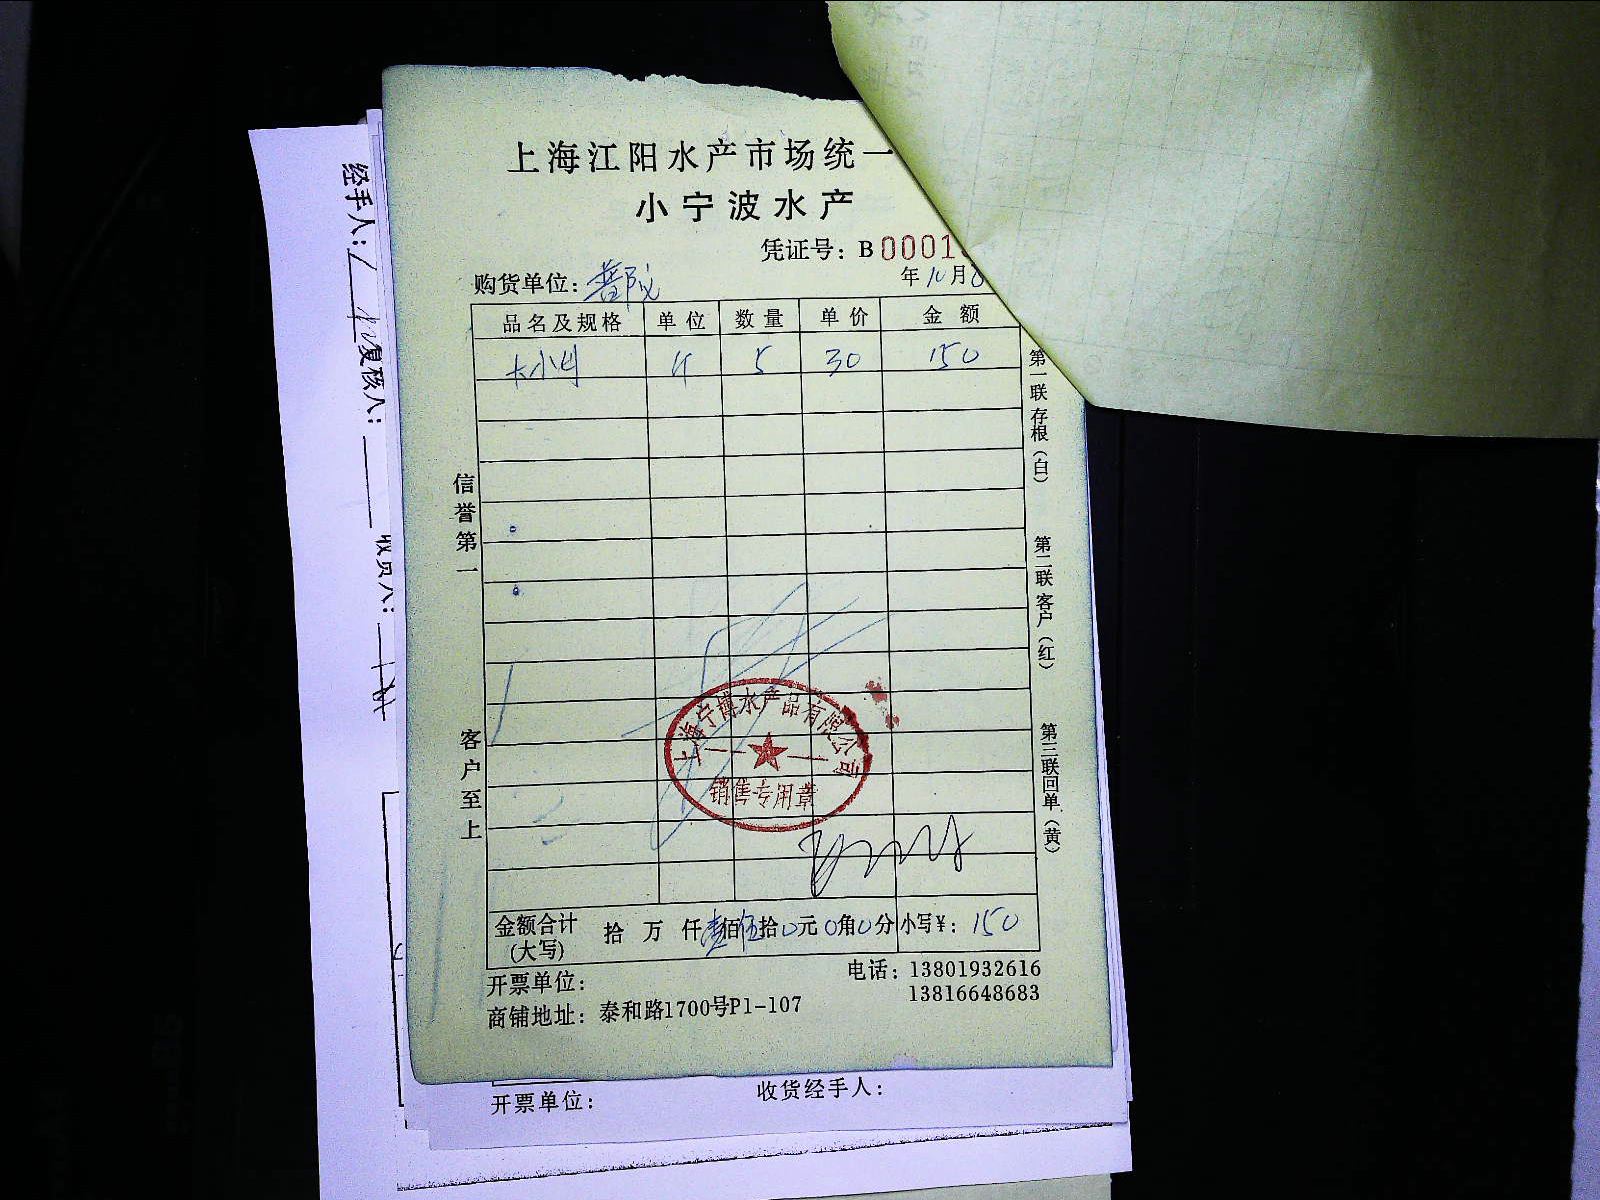 上海江阳水产市场统一
小宁波水产
凭证号：B 0001
购货单位：
年10月
品名及规格 单位 数量 单价 金额
斤 5 30 150
信誉第一
客户至上
第一联存根（白）
第二联客户（红）
第三联回单（黄）
上海宁博水产品有限公司
销售专用章
金额合计（大写） 拾 万 仟壹佰伍拾0元0角0分 小写¥：150
开票单位：
电话：13801932616
13816648683
商铺地址：泰和路1700号P1-107
开票单位：
收货经手人：
经手人：
复核人：
收货人：